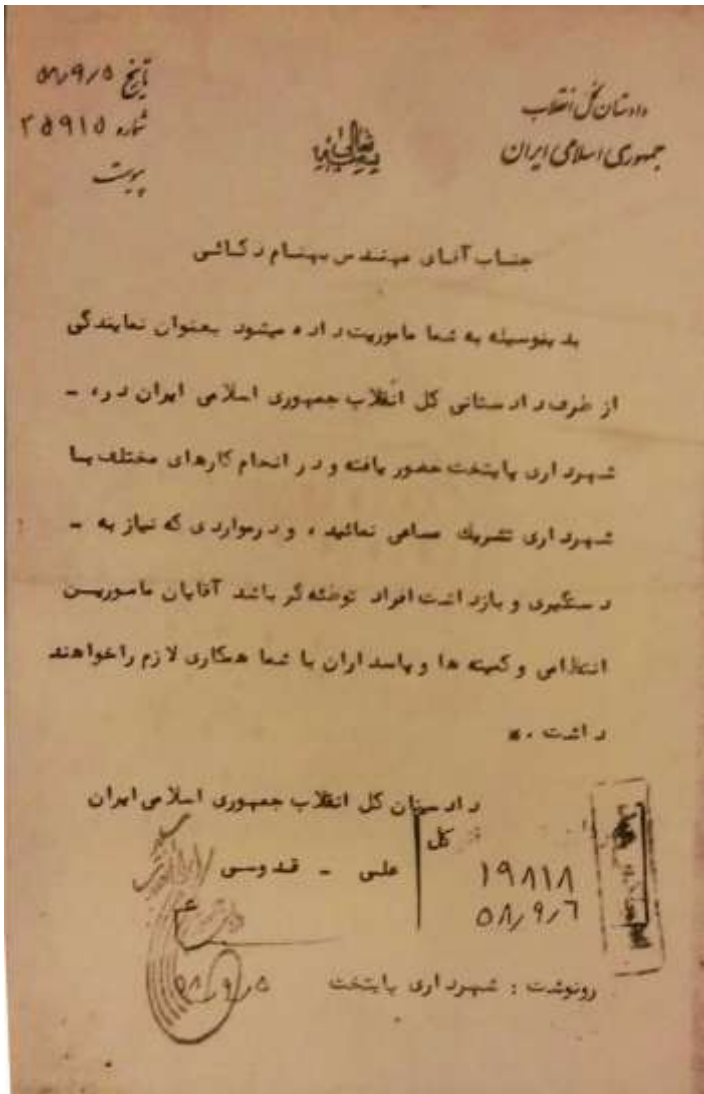 دادستان کل انقلاب
جمهوری اسلامی ایران
بسمه تعالی
تاریخ ۵۸٫۹٫۵
شماره ۲۵۹۱۵
پیوست
جناب آقای مهندس بهنام دکاشی
بدینوسیله به شما ماموریت داده میشود بعنوان نمایندگی
از طرف دادستانی کل انقلاب جمهوری اسلامی ایران در ه -
شهرداری پایتخت حضور یافته و در انجام کارهای مختلف با
شهرداری تشریک مساعی نمائید ، و در مواردی که نیاز به -
دستگیری و بازداشت افراد توطئه گر باشد آقایان مامورین
انتظامی و کمیته ها و پاسداران با شما همکاری لازم را خواهند
داشت .
دادستان کل انقلاب جمهوری اسلامی ایران
علی - قدوسی
کل
۱۹۸۱۸
۵۸٫۹٫۶
۵۸٫۹٫۵
رونوشت : شهرداری پایتخت